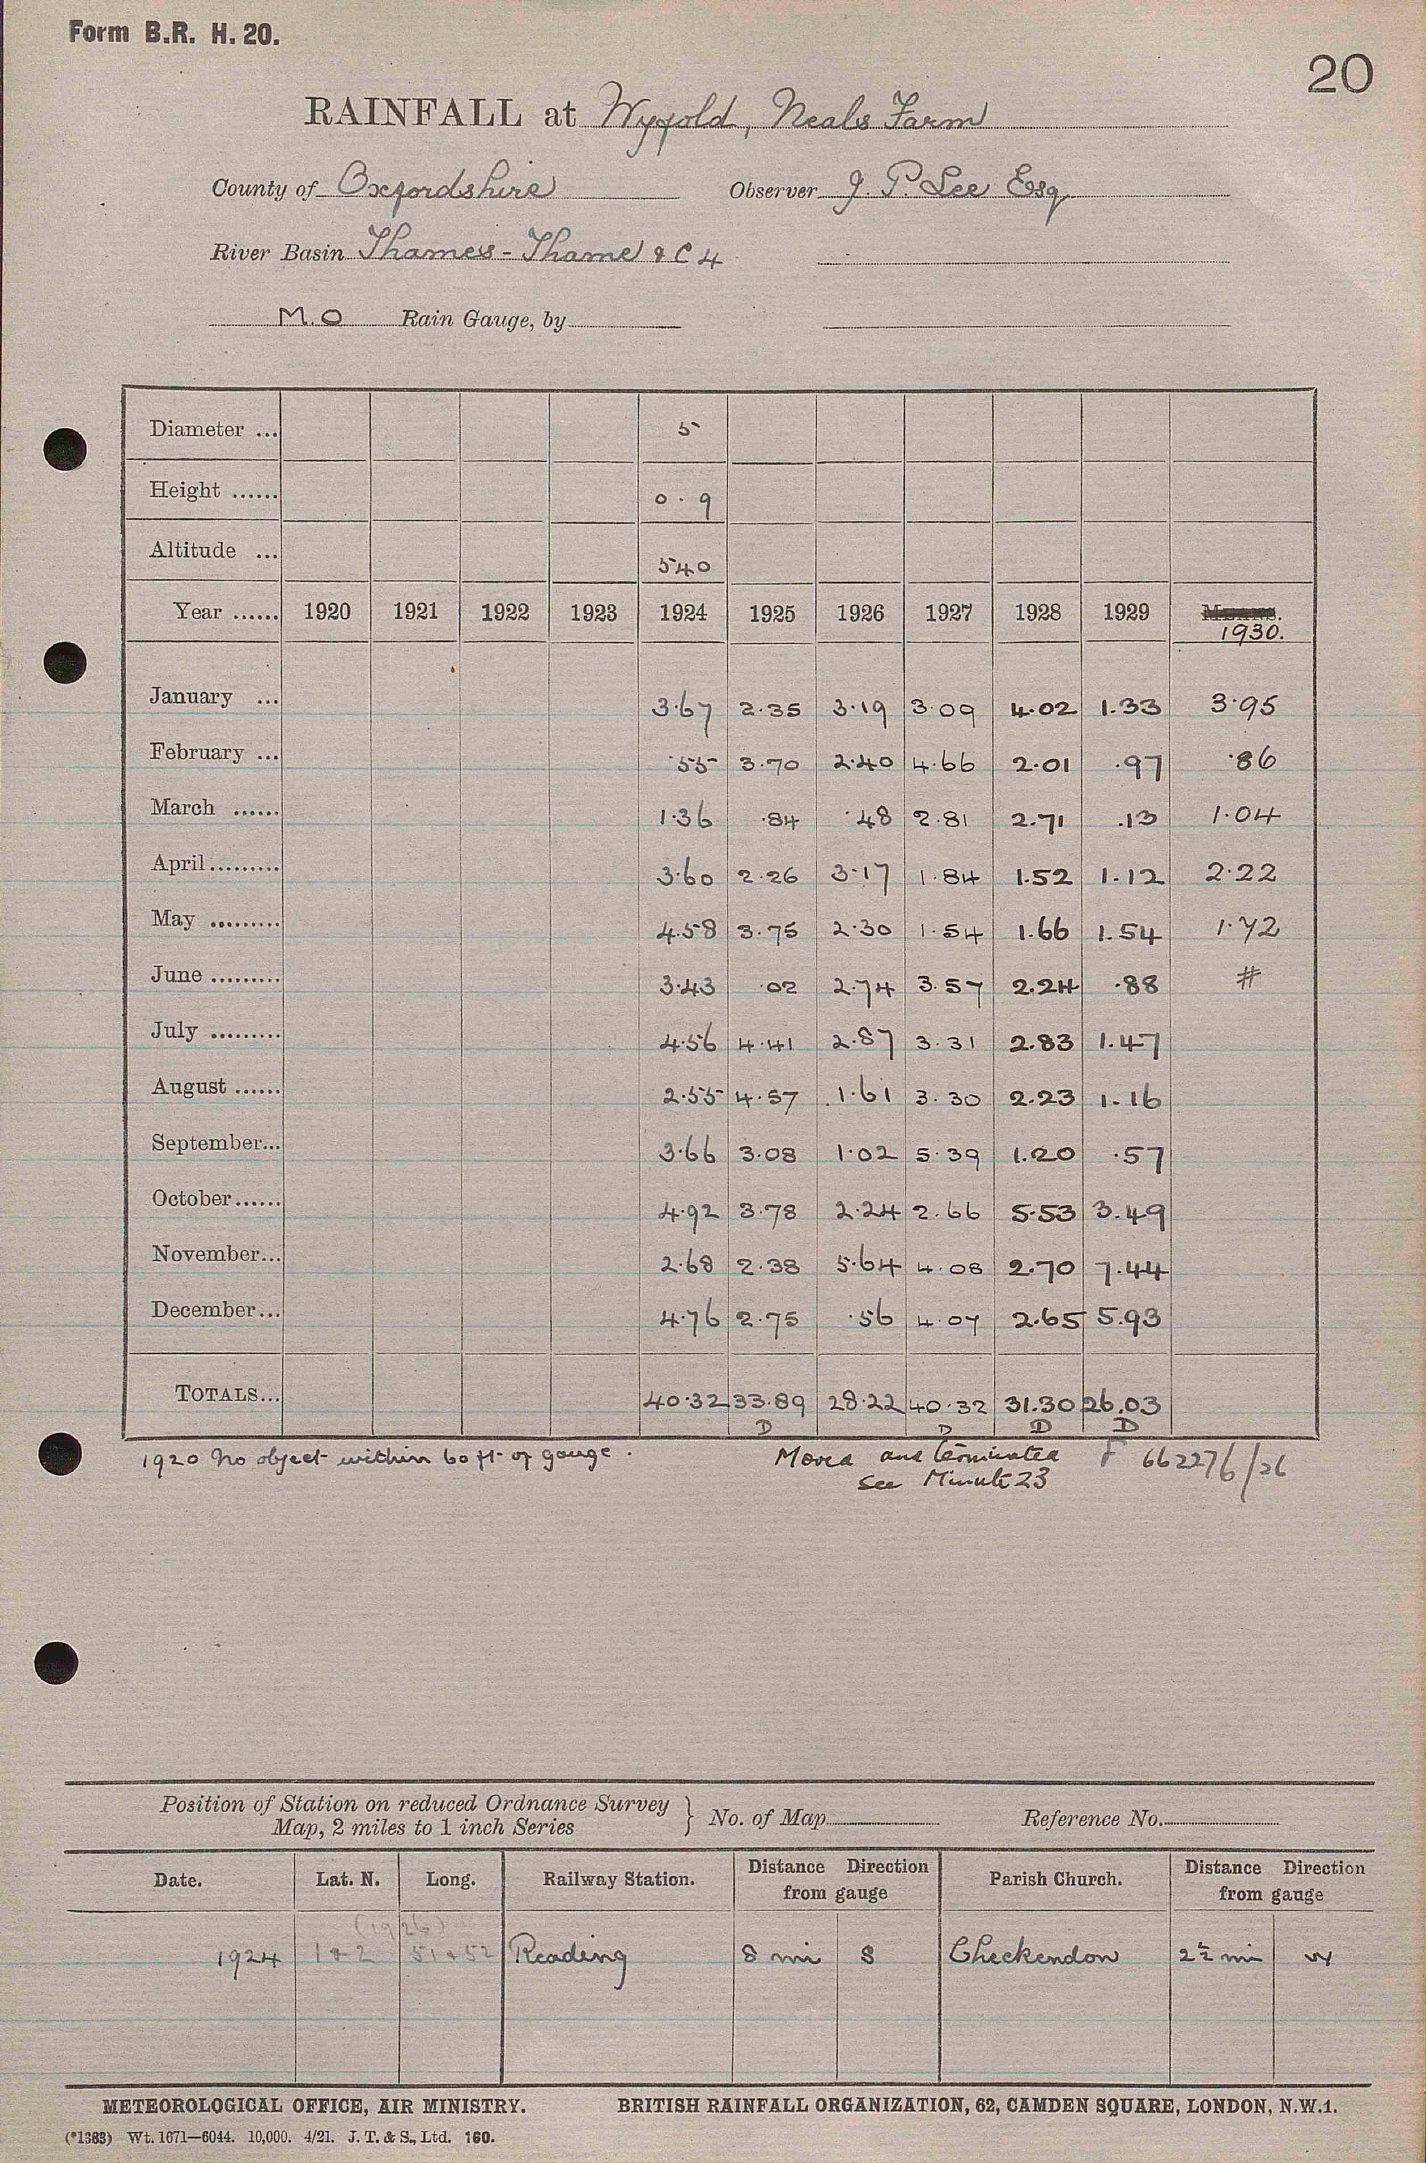 Form B.R. H. 20.
20
RAINFALL at Wyfold, Neals Farm
County of Oxfordshire Observer J. P. Lee Esq
River Basin Thames - Thame & C 4
M.O Rain Gauge, by
Diameter ... 5
Height ...... 0.9
Altitude ... 540
Year ...... 1920 1921 1922 1923 1924 1925 1926 1927 1928 1929 1930.
January ... 3.67 2.35 3.19 3.09 4.02 1.33 3.95
February ... .55 3.70 2.40 4.66 2.01 .97 .86
March ...... 1.36 .84 .48 2.81 2.71 .13 1.04
April ......... 3.60 2.26 3.17 1.84 1.52 1.12 2.22
May ......... 4.58 3.75 2.30 1.54 1.66 1.54 1.72
June ......... 3.43 .02 2.74 3.57 2.24 .88 #
July ......... 4.56 4.41 2.87 3.31 2.83 1.47
August ...... 2.55 4.57 1.61 3.30 2.23 1.16
September... 3.66 3.08 1.02 5.39 1.20 .57
October...... 4.92 3.78 2.24 2.66 5.53 3.49
November... 2.68 2.38 5.64 4.08 2.70 7.44
December... 4.76 2.75 .56 4.07 2.65 5.93
TOTALS... 40.32 33.89 28.22 40.32 31.30 26.03
D D D D
1920 No object within 60 ft of gauge. Moved and terminated F 662276/26
see Minute 23
Position of Station on reduced Ordnance Survey
Map, 2 miles to 1 inch Series } No. of Map Reference No.
Date. Lat. N. Long. Railway Station. Distance Direction from gauge Parish Church. Distance Direction from gauge
(1926)
1924 1 & 2 51 & 52 Reading 8 mi S Checkendon 2½ mi W
METEOROLOGICAL OFFICE, AIR MINISTRY. BRITISH RAINFALL ORGANIZATION, 62, CAMDEN SQUARE, LONDON, N.W.1.
(*1383) Wt. 1671—6044. 10,000. 4/21. J. T. & S., Ltd. 160.